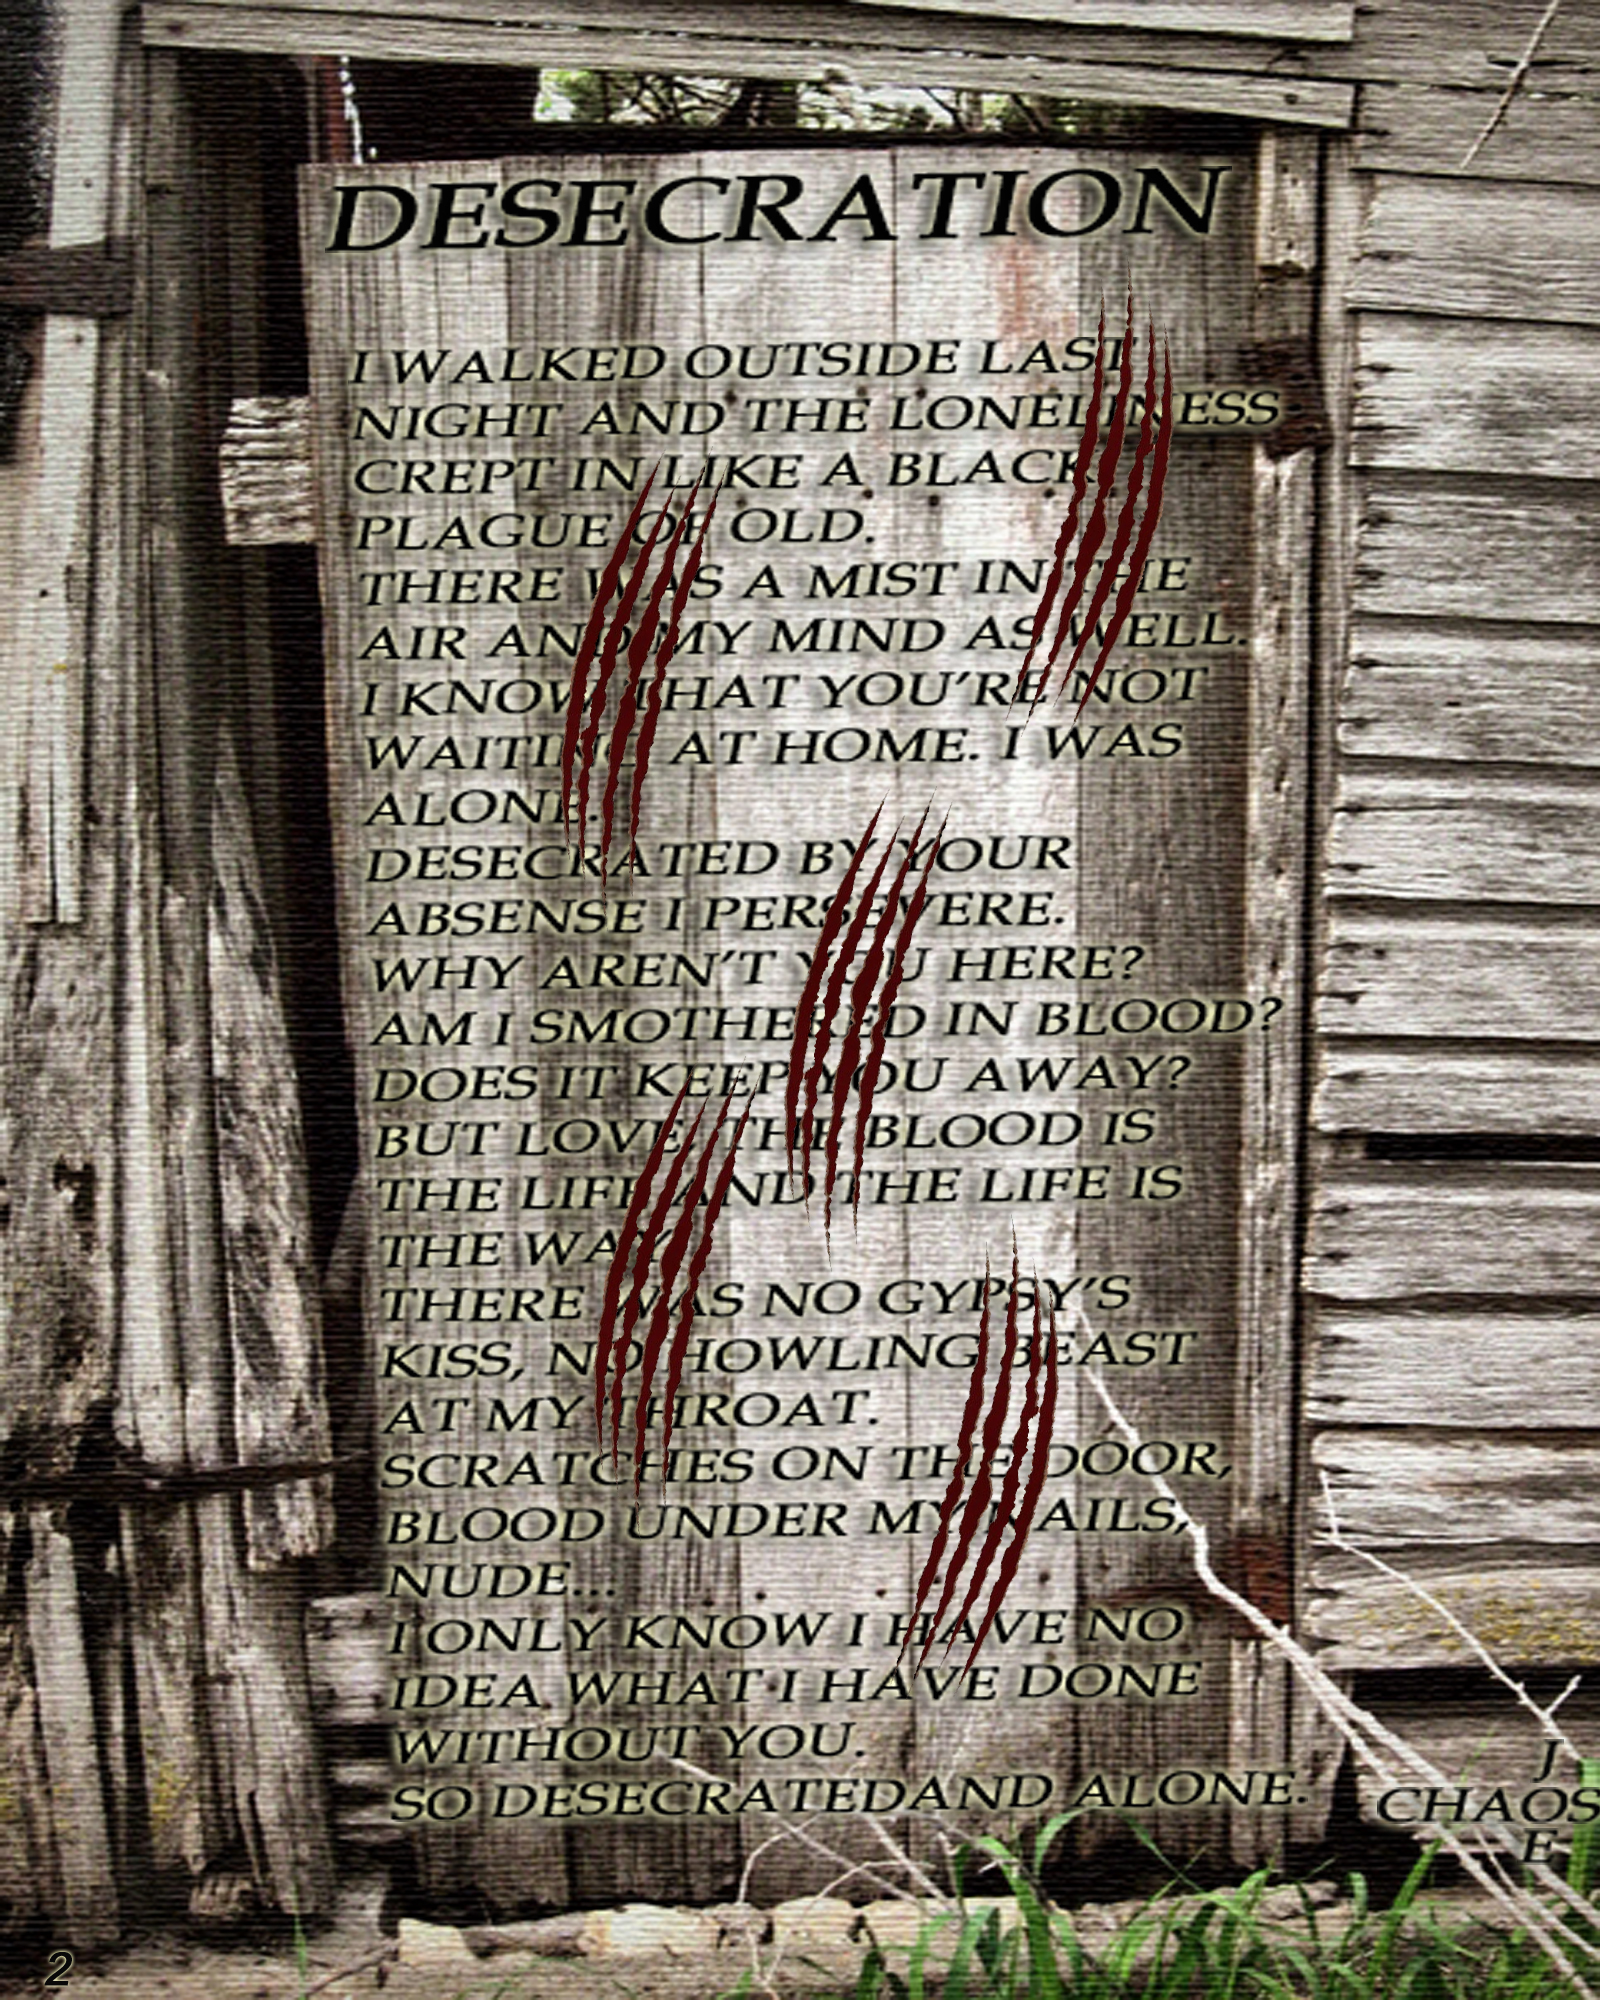 DESECRATION
I WALKED OUTSIDE LAST
NIGHT AND THE LONELINESS
CREPT IN LIKE A BLACK
PLAGUE OF OLD.
THERE WAS A MIST IN THE
AIR AND MY MIND AS WELL.
I KNOW THAT YOU'RE NOT
WAITING AT HOME. I WAS
ALONE.
DESECRATED BY YOUR
ABSENSE I PERSEVERE.
WHY AREN'T YOU HERE?
AM I SMOTHERED IN BLOOD?
DOES IT KEEP YOU AWAY?
BUT LOVE, THE BLOOD IS
THE LIFE AND THE LIFE IS
THE WAY.
THERE WAS NO GYPSY'S
KISS, NO HOWLING BEAST
AT MY THROAT.
SCRATCHES ON THE DOOR,
BLOOD UNDER MY NAILS,
NUDE...
I ONLY KNOW I HAVE NO
IDEA WHAT I HAVE DONE
WITHOUT YOU.
SO DESECRATEDAND ALONE.
J
CHAOS
E
2